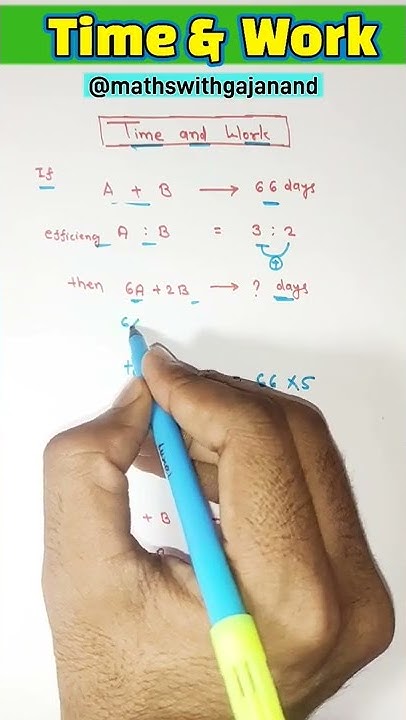 Time & Work
@mathswithgajanand
Time and Work
If
A + B → 66 days
efficieng A : B = 3 : 2
then 6A + 2B → ? days
6
+ = 66 × 5
+ B +